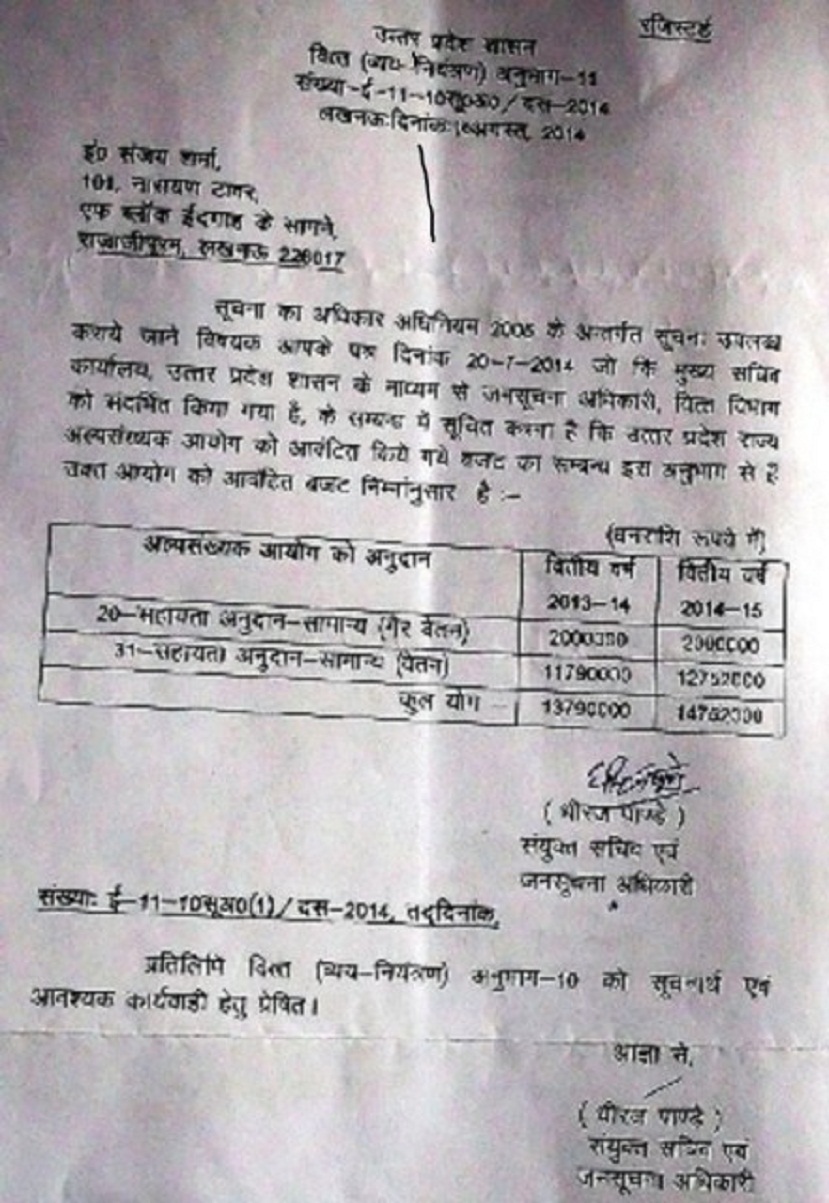 रजिस्टर्ड
उत्तर प्रदेश शासन
वित्त (व्यय-नियंत्रण) अनुभाग-11
संख्या-ई-11-10सू0अ0/दस-2014
लखनऊ:दिनांक: अगस्त, 2014
इं0 संजय शर्मा,
101, नारायण टावर,
एफ ब्लॉक ईदगाह के सामने,
राजाजीपुरम, लखनऊ 226017
सूचना का अधिकार अधिनियम 2005 के अन्तर्गत सूचना उपलब्ध
कराये जाने विषयक आपके पत्र दिनांक 20-7-2014 जो कि मुख्य सचिव
कार्यालय, उत्तर प्रदेश शासन के माध्यम से जनसूचना अधिकारी, वित्त विभाग
को संदर्भित किया गया है, के सम्बन्ध में सूचित करना है कि उत्तर प्रदेश राज्य
अल्पसंख्यक आयोग को आवंटित किये गये बजट का सम्बन्ध इस अनुभाग से है
उक्त आयोग को आवंटित बजट निम्नांनुसार है :-
(धनराशि रूपये में)
अल्पसंख्यक आयोग को अनुदान वित्तीय वर्ष 2013-14 वित्तीय वर्ष 2014-15
20-सहायता अनुदान-सामान्य (गैर वेतन) 2000000 2000000
31-सहायता अनुदान-सामान्य (वेतन) 11790000 12752000
कुल योग 13790000 14752000
(धीरज पाण्डे)
संयुक्त सचिव एवं
जनसूचना अधिकारी
संख्या: ई-11-10सू0अ0(1)/दस-2014, तद्दिनांक,
प्रतिलिपि वित्त (व्यय-नियंत्रण) अनुभाग-10 को सूचनार्थ एवं
आवश्यक कार्यवाही हेतु प्रेषित।
आज्ञा से,
(धीरज पाण्डे)
संयुक्त सचिव एवं
जनसूचना अधिकारी